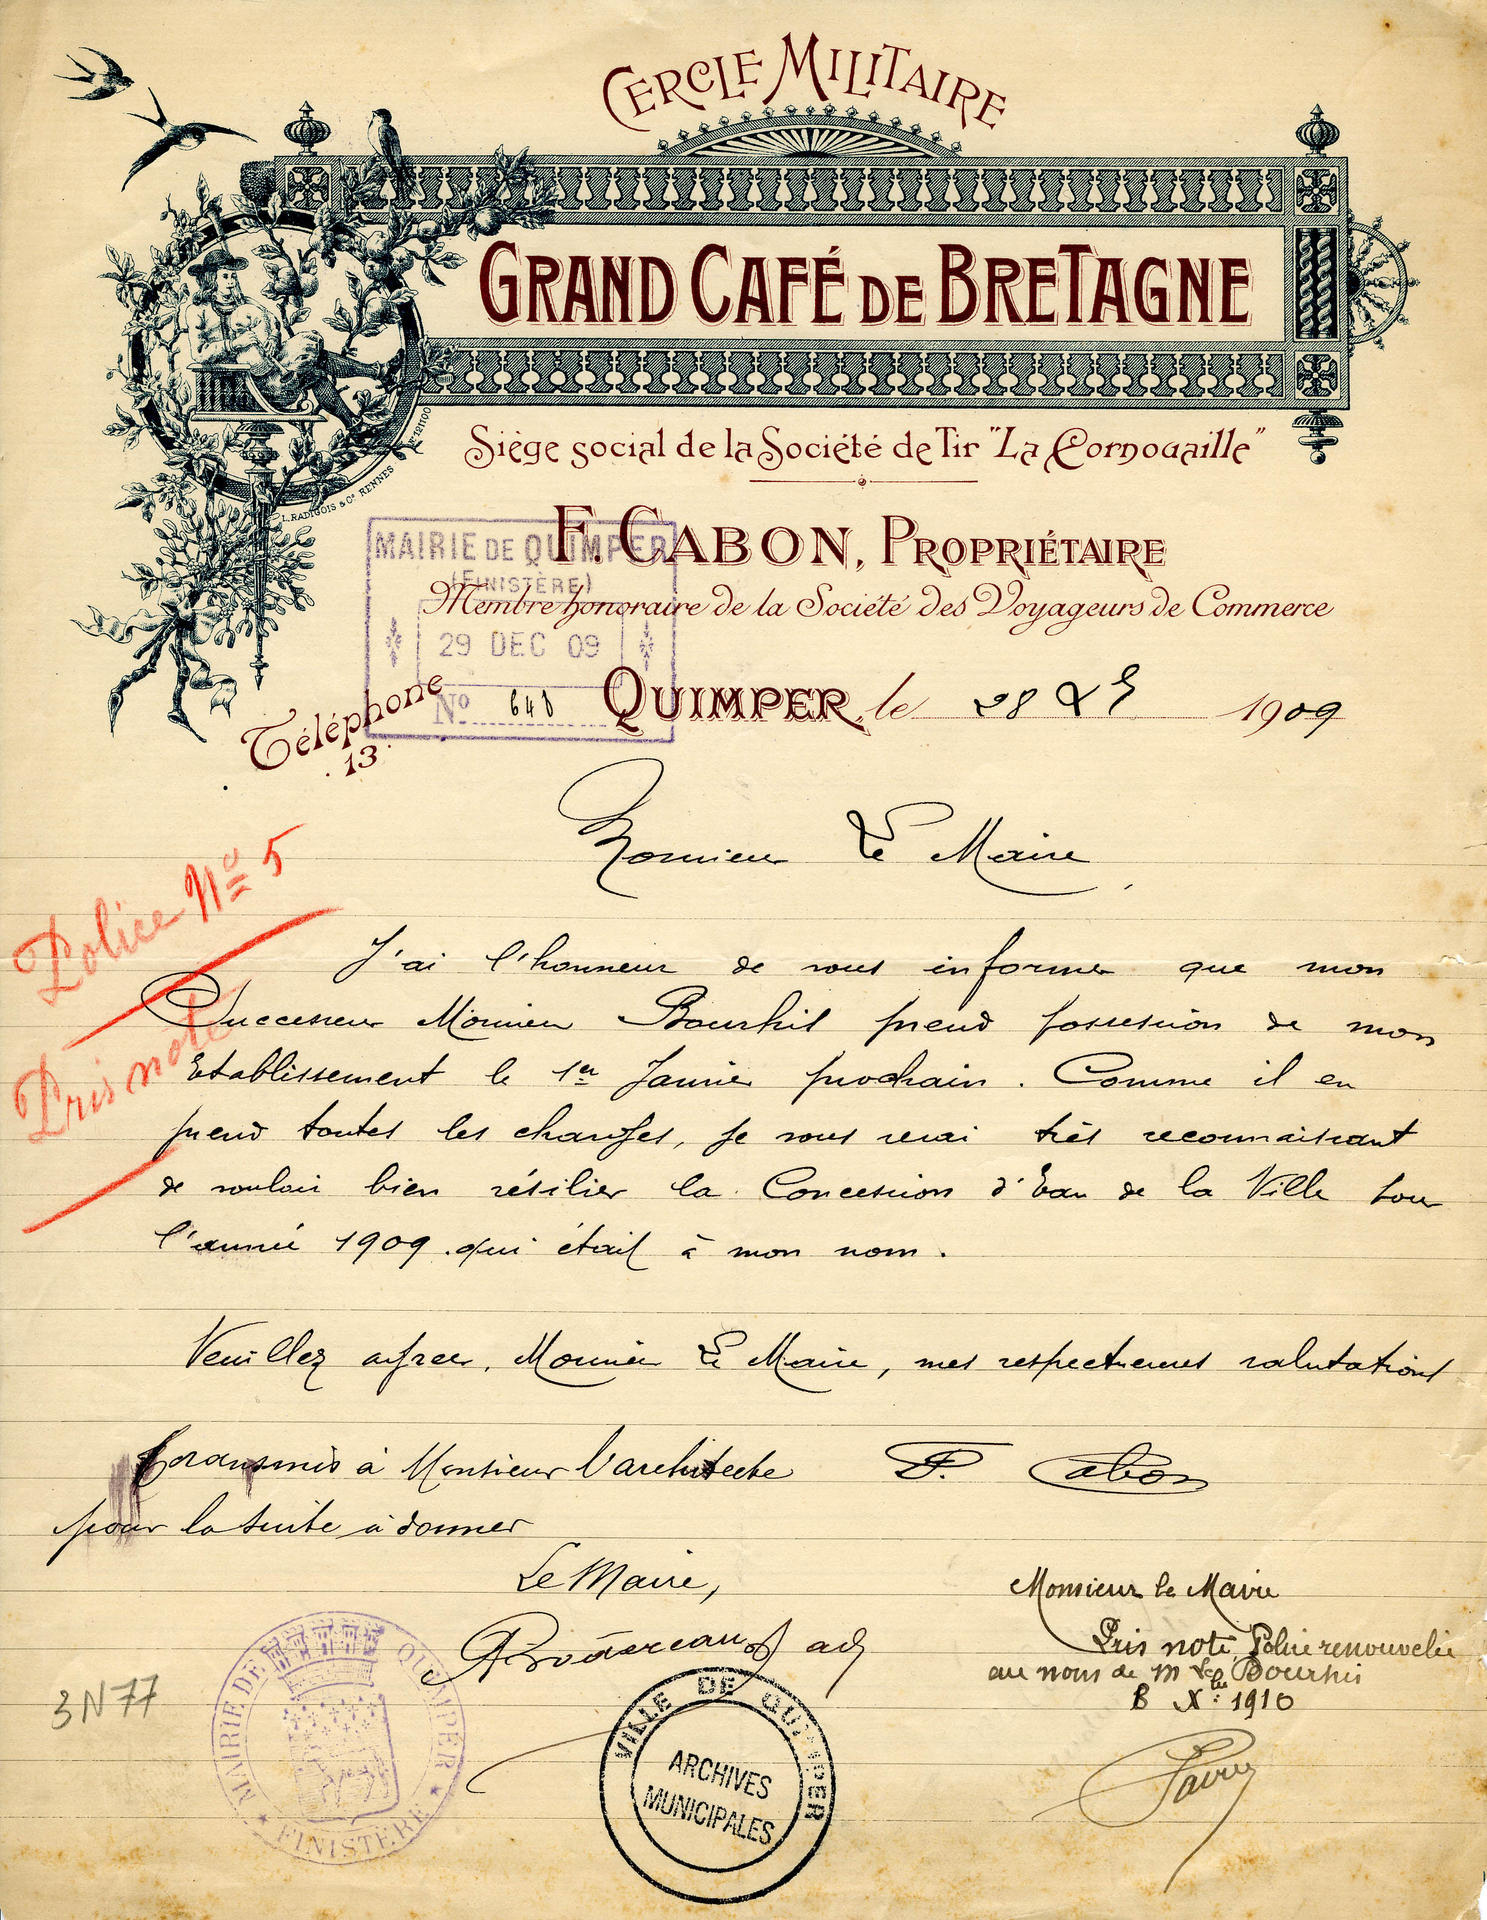 CERCLE MILITAIRE
GRAND CAFÉ DE BRETAGNE
L. RADIGOIS & Cie RENNES No 121100
Siège social de la Société de Tir "La Cornouaille"
F. CABON, PROPRIÉTAIRE
Membre honoraire de la Société des Voyageurs de Commerce
MAIRIE DE QUIMPER
(FINISTÈRE)
29 DEC 09
No 648
QUIMPER, le 28 Xbre 1909
Téléphone
13
Monsieur Le Maire,
Police No 5
Pris note
J'ai l'honneur de vous informer que mon
Successeur Monsieur Bourhis prend possession de mon
Etablissement le 1er Janvier prochain. Comme il en
prend toutes les charges, je vous serai très reconnaissant
de vouloir bien résilier la Concession d'Eau de la Ville pour
l'année 1909. qui était à mon nom.
Veuillez agréer, Monsieur Le Maire, mes respectueuses salutations
F. Cabon
Transmis à Monsieur l'architecte
pour la suite à donner
Le Maire,
adj
Monsieur le Maire
Pris note, Police renouvelée
au nom de M Le Bourhis
1910
3N77
MAIRIE DE QUIMPER
★ FINISTÈRE ★
VILLE DE QUIMPER
ARCHIVES
MUNICIPALES